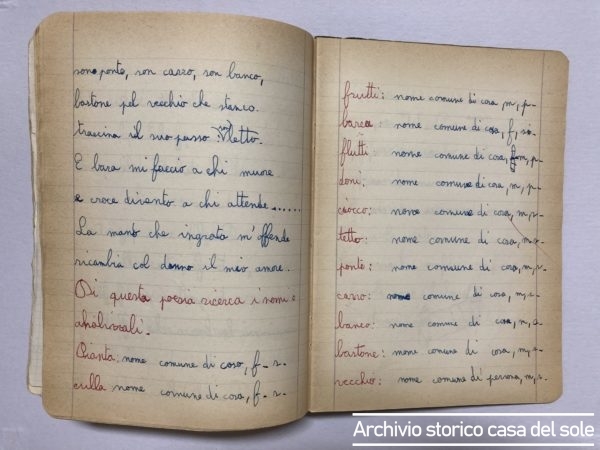 sono ponte, son carro, son banco,
bastone pel vecchio che stanco
trascina il suo passo letto.
E bara mi faccio a chi muore
e croce divento a chi attende......
La mano che ingrata m'offende
ricambia col donno il mio amore.
Di questa poesia ricerca i nomi e
analizzali.
Pianta: nome comune di cosa, f. s.
culla nome comune di cosa, f. s.
frutti: nome comune di cosa, m, p.
barca: nome comune di cosa, f, s.
flutti: nome comune di cosa, m, p.
doni: nome comune di cosa, m, p.
ciocco: nome comune di cosa, m, s.
tetto: nome comune di cosa, m, s.
ponte: nome comune di cosa, m, s.
carro: nome comune di cosa, m, s.
banco: nome comune di cosa, m, s.
bastone: nome comune di cosa, m, s.
vecchio: nome comune di persona, m, s.
Archivio storico casa del sole